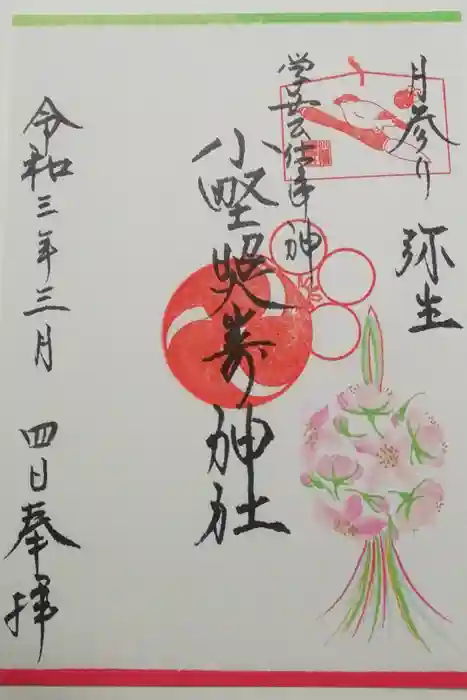 月参り 弥生
学芸の仕事神
小野照崎神社
令和三年三月 四日奉拝